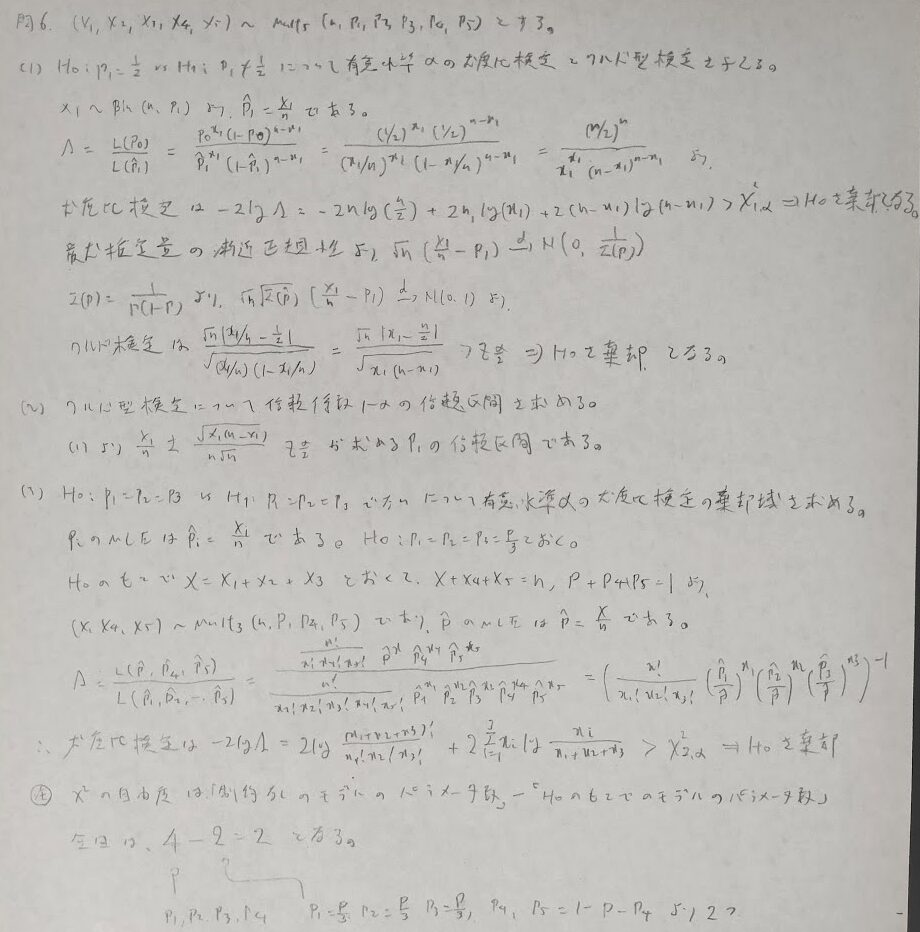 問6. (X₁, X₂, X₃, X₄, X₅) ~ Mult₅ (n, P₁, P₂, P₃, P₄, P₅) とする。
(1) H₀: p₁ = 1/2 vs H₁: p₁ ≠ 1/2 について有意水準 α の尤度比検定とワルド型検定を与える。
x₁ ~ Bin (n, P₁) より, p̂₁ = x₁/n である。
Λ = L(P₀)/L(p̂₁) = P₀^x₁ (1-P₀)^(n-x₁) / p̂₁^x₁ (1-p̂₁)^(n-x₁) = (1/2)^x₁ (1/2)^(n-x₁) / (x₁/n)^x₁ (1-x₁/n)^(n-x₁) = (n/2)^n / x₁^x₁ (n-x₁)^(n-x₁) より,
尤度比検定は -2log Λ = -2n log(n/2) + 2x₁ log(x₁) + 2(n-x₁) log(n-x₁) > χ²₁,α ⇒ H₀を棄却となる。
最尤推定量の漸近正規性より √n (x₁/n - P₁) →d N(0, 1/I(p))
I(p) = 1/p(1-p) より, √n √I(p̂) (x₁/n - P₁) →d N(0,1) より,
ワルド検定は √n |x₁/n - 1/2| / √(x₁/n)(1-x₁/n) = √n |x₁ - n/2| / √x₁(n-x₁) > z α/2 ⇒ H₀を棄却となる。
(2) ワルド型検定について信頼係数 1-α の信頼区間を求める。
(1)より x₁/n ± √x₁(n-x₁) / n√n z α/2 が求める P₁ の信頼区間である。
(3) H₀: p₁=p₂=p₃ vs H₁: p₁=p₂=p₃ でない について有意水準αの尤度比検定の棄却域を求める。
pᵢのMLEは p̂ᵢ = xᵢ/n である。H₀: p₁=p₂=p₃=p/3 とおく。
H₀のもとで X = X₁+X₂+X₃ とおくと, X+X₄+X₅ = n, P+P₄+P₅ = 1 より,
(X, X₄, X₅) ~ Mult₃ (n, P, P₄, P₅) であり, p̂のMLEは p̂ = X/n である。
Λ = L(p̂, p̂₄, p̂₅) / L(p̂₁, p̂₂, … p̂₅) = n!/x! x₄! x₅! p̂^x p̂₄^x₄ p̂₅^x₅ / n!/x₁! x₂! x₃! x₄! x₅! p̂₁^x₁ p̂₂^x₂ p̂₃^x₃ p̂₄^x₄ p̂₅^x₅ = (x!/x₁! x₂! x₃! (p̂₁/p̂)^x₁ (p̂₂/p̂)^x₂ (p̂₃/p̂)^x₃)^-1
∴ 尤度比検定は -2log Λ = 2log (x₁+x₂+x₃)!/x₁! x₂! x₃! + 2 Σ³ᵢ₌₁ xᵢ log xᵢ/x₁+x₂+x₃ > χ²₂,α ⇒ H₀を棄却
注 χ²の自由度は「制約なしのモデルのパラメータ数」-「H₀のもとでのモデルのパラメータ数」
今回は、4 - 2 = 2 となる。
P₁, P₂, P₃, P₄ P₁=P/3, P₂=P/3, P₃=P/3, P₄, P₅ = 1-P-P₄ より 2つ